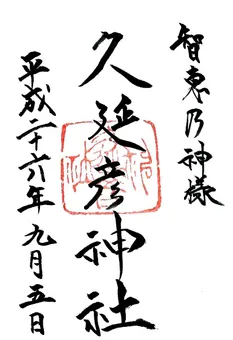 智恵乃神様
久延彦神社
平成二十六年九月五日